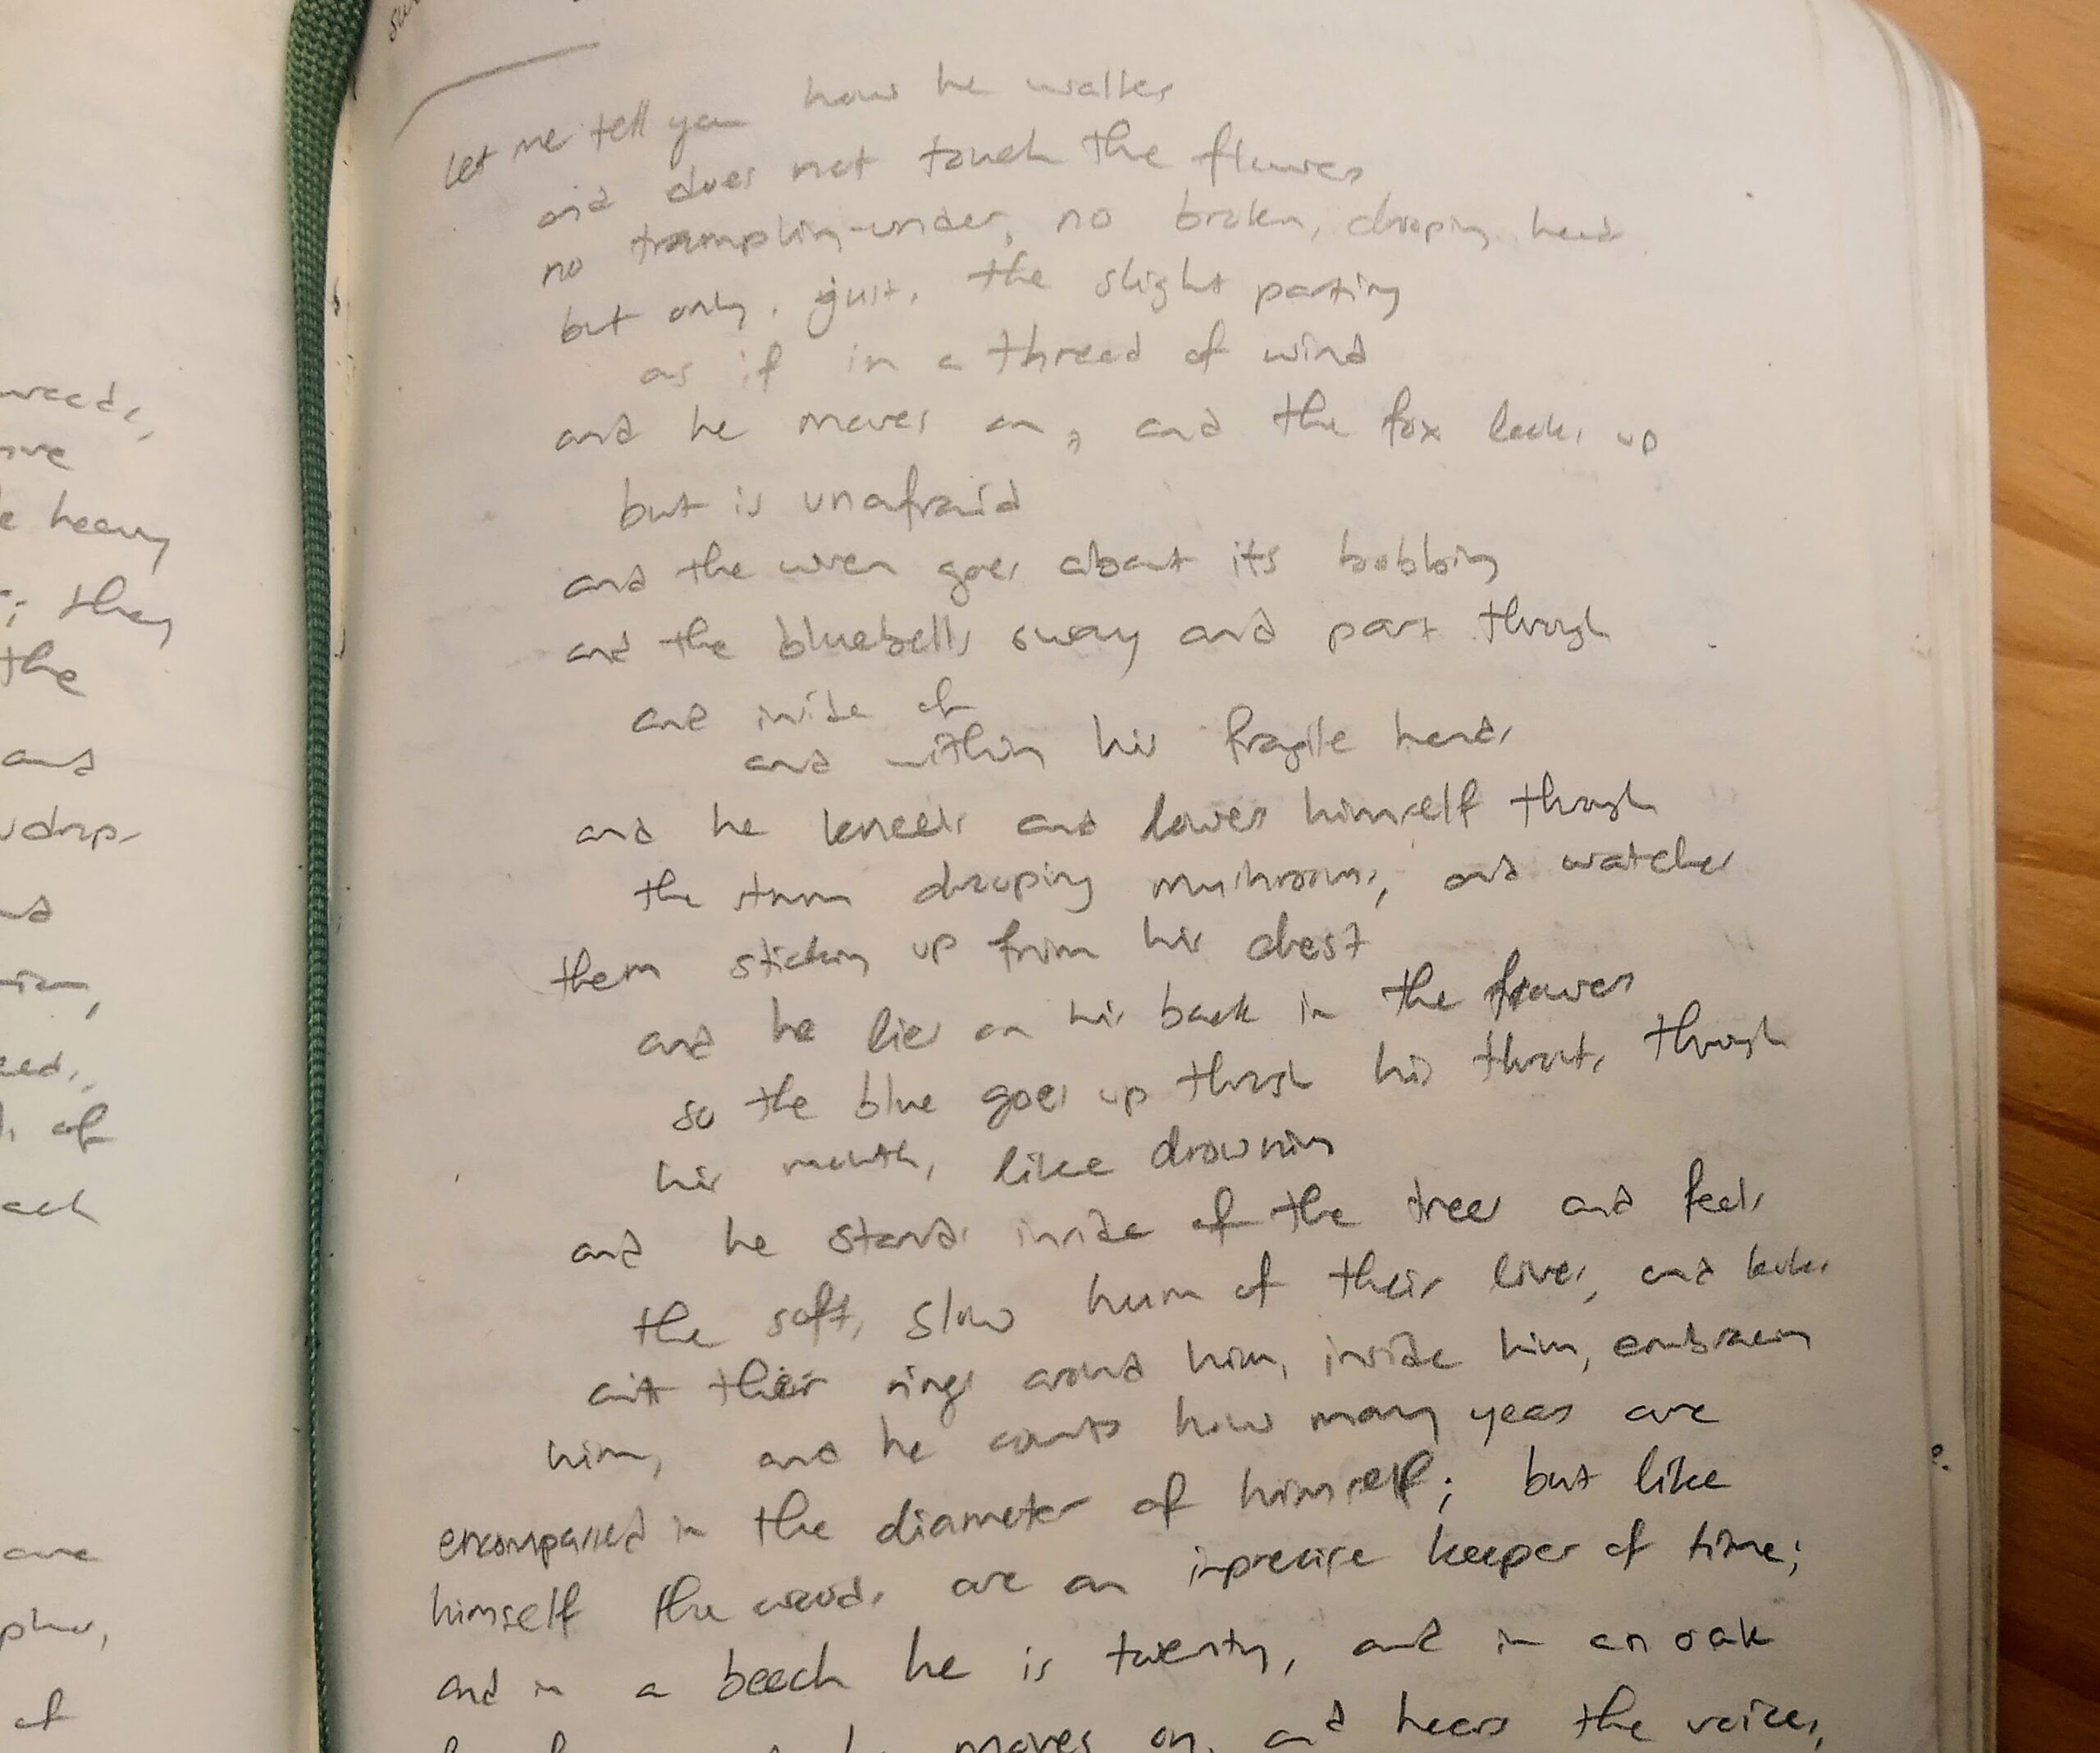 weeds,
heavy
they
the
and
of
are
of
let me tell you how he walks
and does not touch the flowers
no trampling-under, no broken, drooping head
but only, just, the slight parting
as if in a thread of wind
and he moves on, and the fox looks up
but is unafraid
and the wren goes about its bobbing
and the bluebells sway and part through
and inside of
and within his fragile hands
and he kneels and lowers himself through
the drooping mushrooms, and watches
them sticking up from his chest
and he lies on his back in the flowers
so the blue goes up through his throat, through
his mouth, like drowning
and he stands inside of the trees and feels
the soft, slow hum of their lives, and looks
at their rings around him, inside him, embracing
him, and he counts how many years are
encompassed in the diameter of himself; but like
himself the woods are an imprecise keeper of time;
and in a beech he is twenty, and in an oak
moves on, and hears the voices,